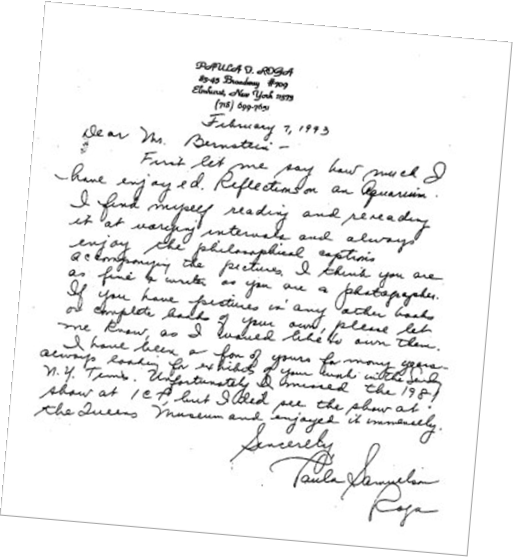 PAULA D. ROGA
83-45 Broadway #709
Elmhurst, New York 11373
(718) 699-7651
February 7, 1993
Dear Mr. Bernstein -
First let me say how much I
have enjoyed. Reflections on an Aquarium.
I find myself reading and rereading
it at varying intervals and always
enjoy the philosophical captions
accompanying the pictures. I think you are
as fine a writer as you are a photographer.
If you have pictures in any other books
or complete books of your own, please let
me know, as I would like to own them.
I have been a fan of yours for many years -
always looking for exhibits of your work in the Sunday
N.Y. Times. Unfortunately I missed the 1981
show at ICP but I did see the show at
the Queens Museum and enjoyed it immensely.
Sincerely
Paula Samuelson
Roga